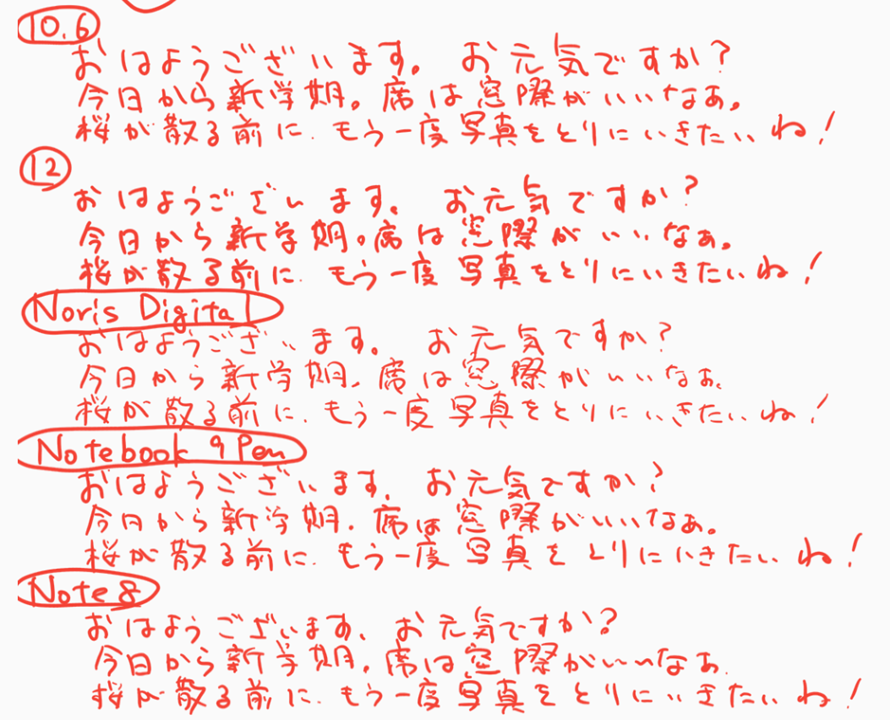 10.6
おはようございます。お元気ですか?
今日から新学期。席は窓際がいいなぁ。
桜が散る前に、もう一度写真をとりにいきたいね!
12
おはようございます。お元気ですか?
今日から新学期。席は窓際がいいなぁ。
桜が散る前に、もう一度写真をとりにいきたいね!
Noris Digital
おはようございます。お元気ですか?
今日から新学期、席は窓際がいいなぁ。
桜が散る前に、もう一度写真をとりにいきたいね!
Notebook 9 Pen
おはようございます。お元気ですか?
今日から新学期、席は窓際がいいなぁ。
桜が散る前に、もう一度写真をとりにいきたいね!
Note 8
おはようございます、お元気ですか?
今日から新学期。席は窓際がいいなぁ
桜が散る前に、もう一度写真をとりにいきたいね!